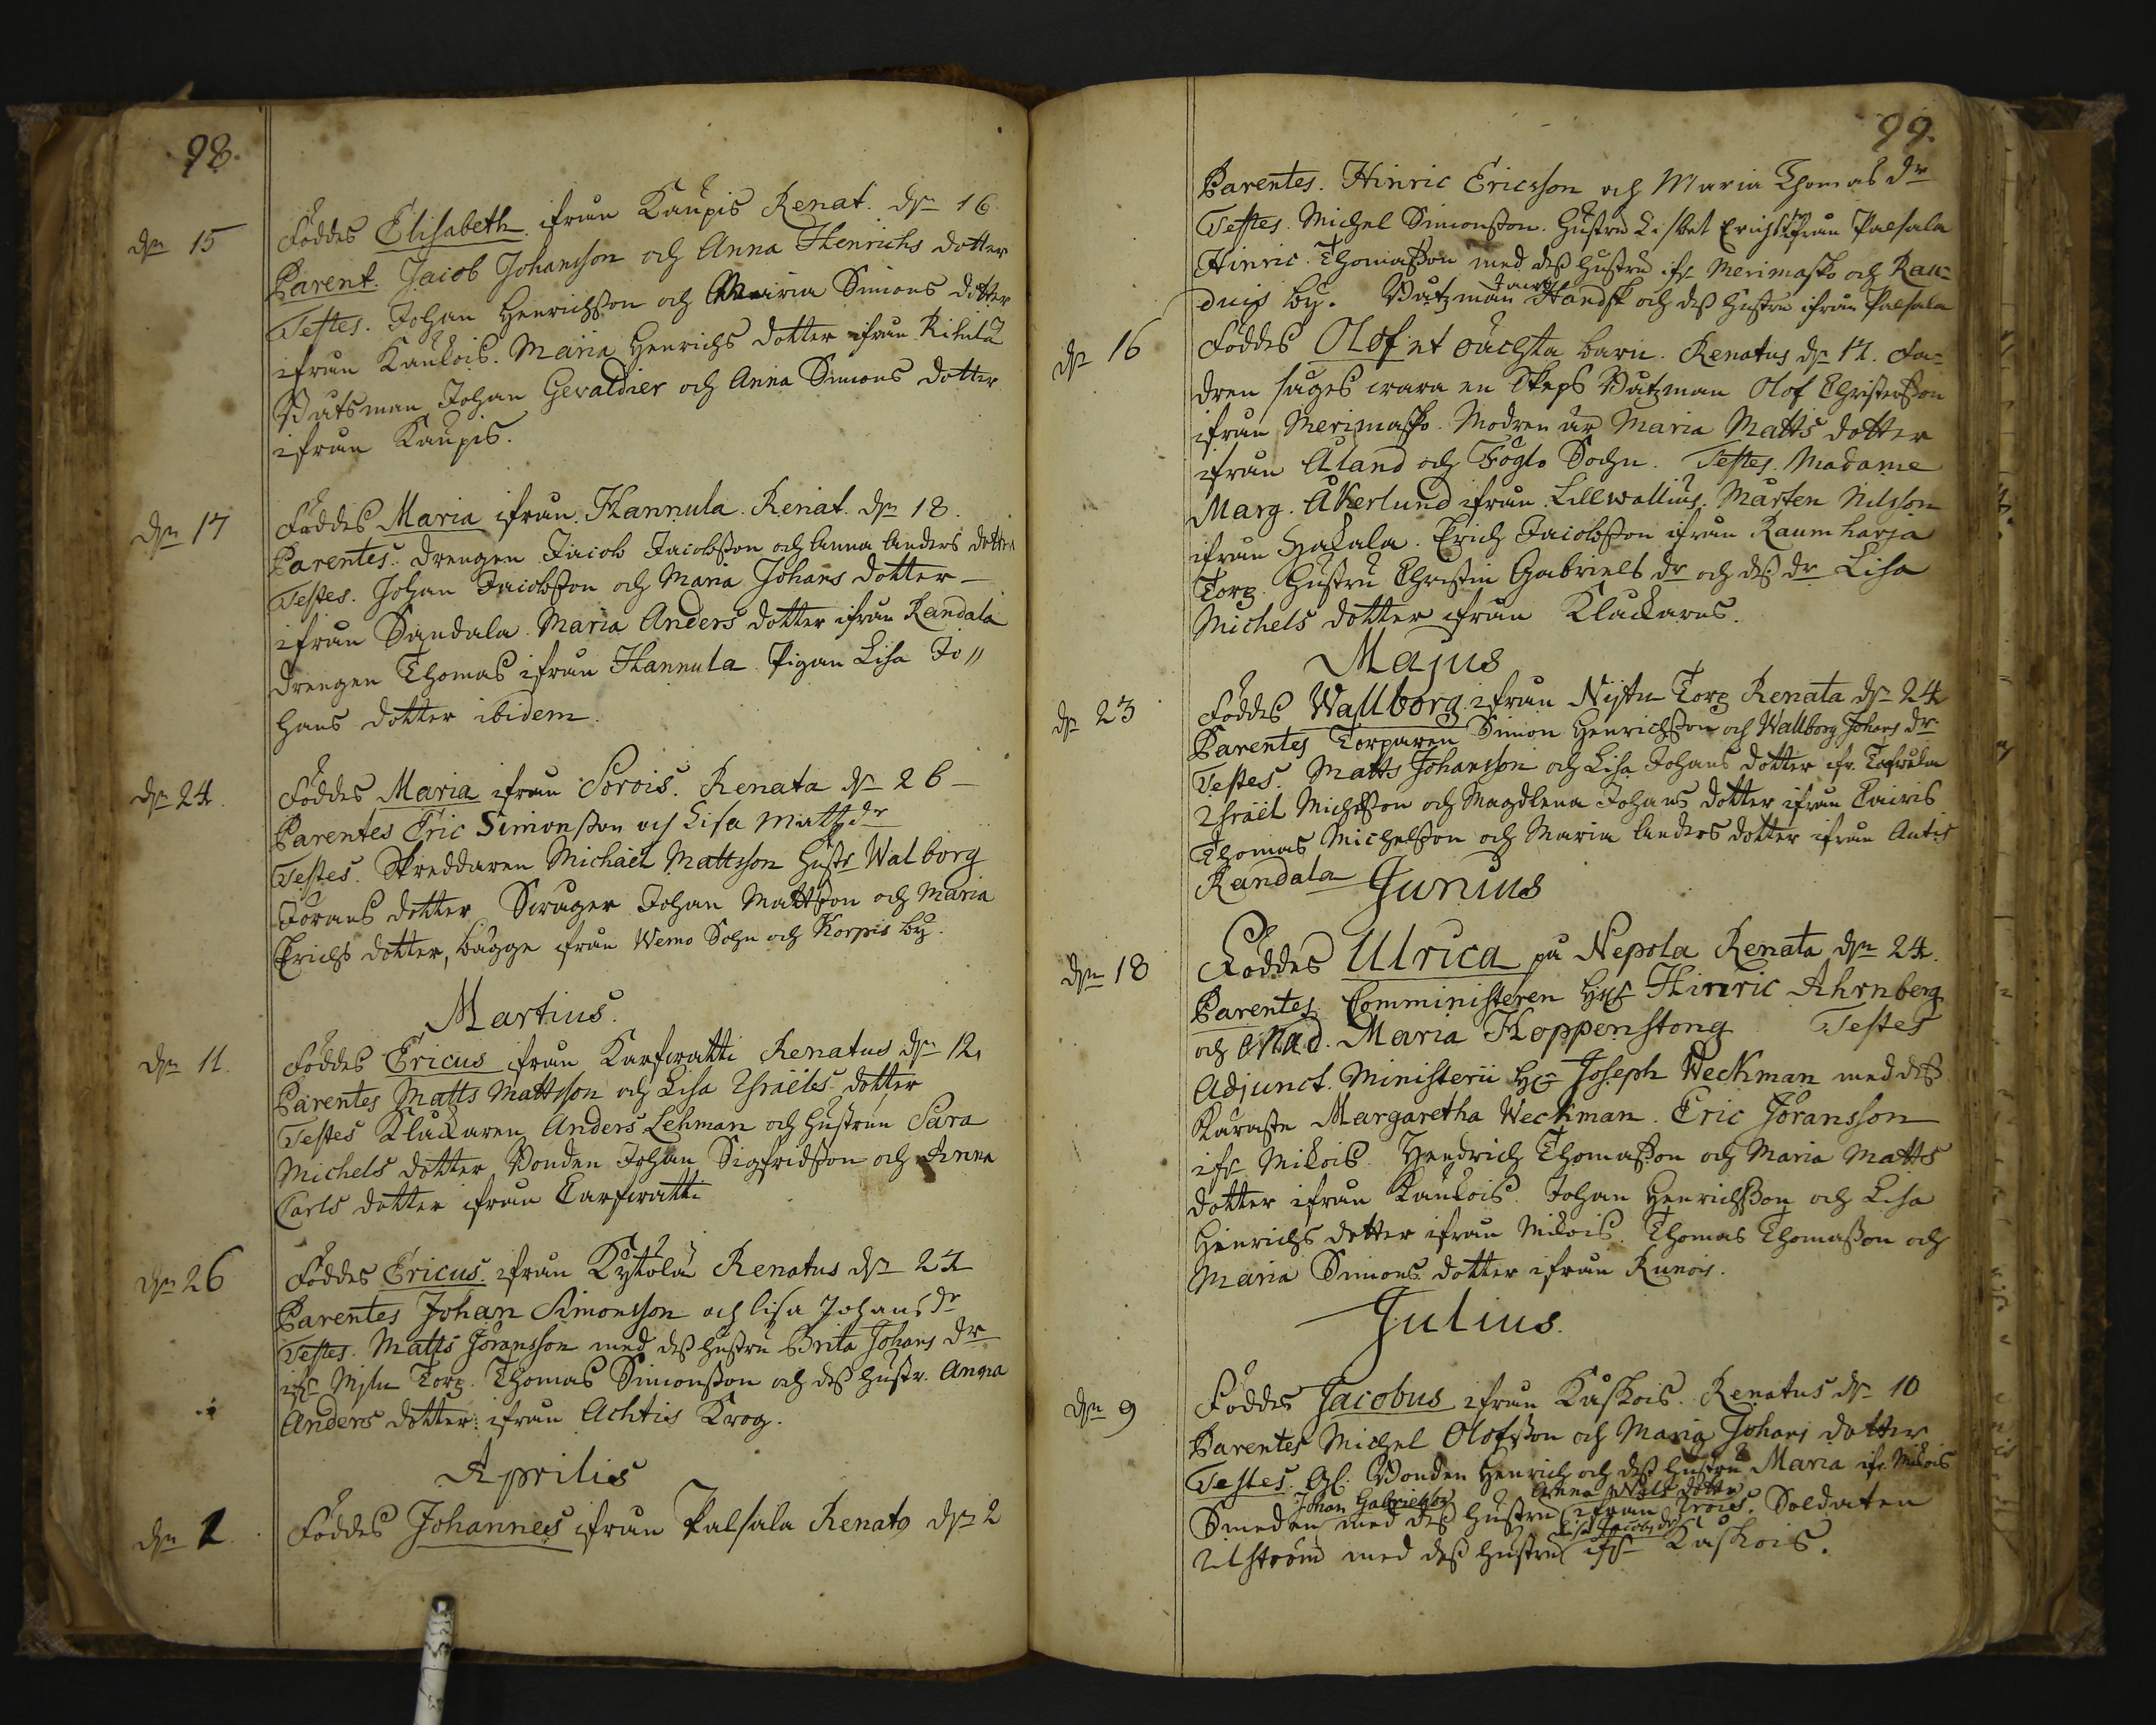 98.
dn 15
Föddes Elisabeth ifrån Kaupis Renat. dn 16
Parent. Jacob Johansson och Anna Henrichs dotter
Testes. Johan Henrichsson och Maria Simons dotter
ifrån Kaukois. Maria Henrichs dotter ifrån
Båtsman Johan Gevaldier och Anna Simons dotter
ifrån Kaupis.
dn 17
Föddes Maria ifrån Hannula. Renat. dn 18.
Parentes. Drengen Jacob Jacobsson och Anna Anders dotter
Testes. Johan Jacobsson och Maria Johans dotter
ifrån Sandala. Maria Anders dotter ifrån Randala
Drengen Thomas ifrån Hannula. Pigan Lisa Jo〃
hans dotter ibidem.
dn 24.
Föddes Maria ifrån Sorois. Renata dn 26
Parentes Eric Simonsson och Lisa Matts dr
Testes. Skreddaren Michaël Mattsson Hustr Walborg
Jörans dotter Swåger Johan Mattsson och Maria
Erichs dotter, bägge ifrån Wemo Sochn och Korpis by.
Martius.
dn 11.
Föddes Ericus ifrån Karfwatti Renatus dn 12,
Parentes Matts Mattsson och Lisa Israëls dotter
Testes Klåckaren Anders Lehman och Hustrun Sara
Michels dotter, Bonden Johan Sigfridsson och Anna
Carls dotter ifrån Carfwatti
dn 26
Föddes Ericus ifrån Kÿtölä Renatus dn 27
Parentes Johan Simonsson och Lisa Johans dr
Testes. Matts Jöransson med dess hustru Brita Johans dr
ifr Torp. Thomas Simonsson och dess hustr. Anna
Anders dotter ifrån Achtis Krog.
Aprilis
dn 1.
Föddes Johannes ifrån Palsala Renatq dn 2
99.
Parentes. Hinric Ericsson och Maria Thomas dr
Testes. Michel Simonsson. Hustru Lisbet Erichs dr ifrån Palsala
Hinric Thomasson med dess hustru ifr Merimasko och Ran-
duis by. Båtzman Handsk och dess Hustru ifrån Palsala
dn 16
Föddes Olof et oächta barn. Renatus dn 17. Fa-
dren säges wara en Skeps Båtzman Olof Christersson
ifrån Merimasko. Modren är Maria Matts dotter
ifrån Åland och Föglö Sochn. Testes. Madame
Marg. Åkerlund ifrån Lillwallius. Mårten Nilsson
ifrån Hakala. Erich Jacobsson ifrån Raumharja
Torp. Hustru Christin Gabriels dr och dess dr Lisa
Michels dotter ifrån Klåckarns.
Majus
dn 23
Föddes Wallborg ifrån Torp Renata dn 24
Parentes Torparen Simon Henrichsson och Wallborg Johans dr
Testes. Matts Johansson och Lisa Johans dotter ifr.
Israël Michelsson och Magdlena Johans dotter ifrån Cairis
Thomas Michelsson och Maria Anders dotter ifrån Antis
Randala
Junius
dn 18
Föddes Ulrica på Nepola Renata dn 24.
Parentes. Comministeren Hr Hinric Ahrnberg
och Mad. Maria Koppenstong Testes
Adjunct. Ministerii Hr Joseph Weckman med dess
Käraste Margaretha Weckman. Eric Jöransson
ifr Mikois. Hendrich Thomasson och Maria Matts
dotter ifrån Kaukois. Johan Henrichsson och Lisa
Henrichs dotter ifrån Mikois. Thomas Thomasson och
Maria Simons dotter ifrån Runois.
Julius.
dn 9
Föddes Jacobus ifrån Kåskois. Renatus dn 10
Parentes Michel Olofsson och Maria Johans dotter
Testes. Bonden Henrich och dess hustru Maria ifr. Mikois
Johan Gabrielsson Anna dotter
Smeden med dess hustru ifrån Soldaten
Lisa Jacobs dr
med dess hustru ifr Kåskois.